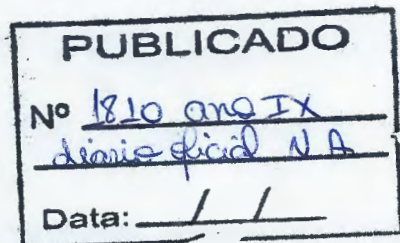 PUBLICADO
Nº 1810 ano IX
diario oficial N A
Data: / /